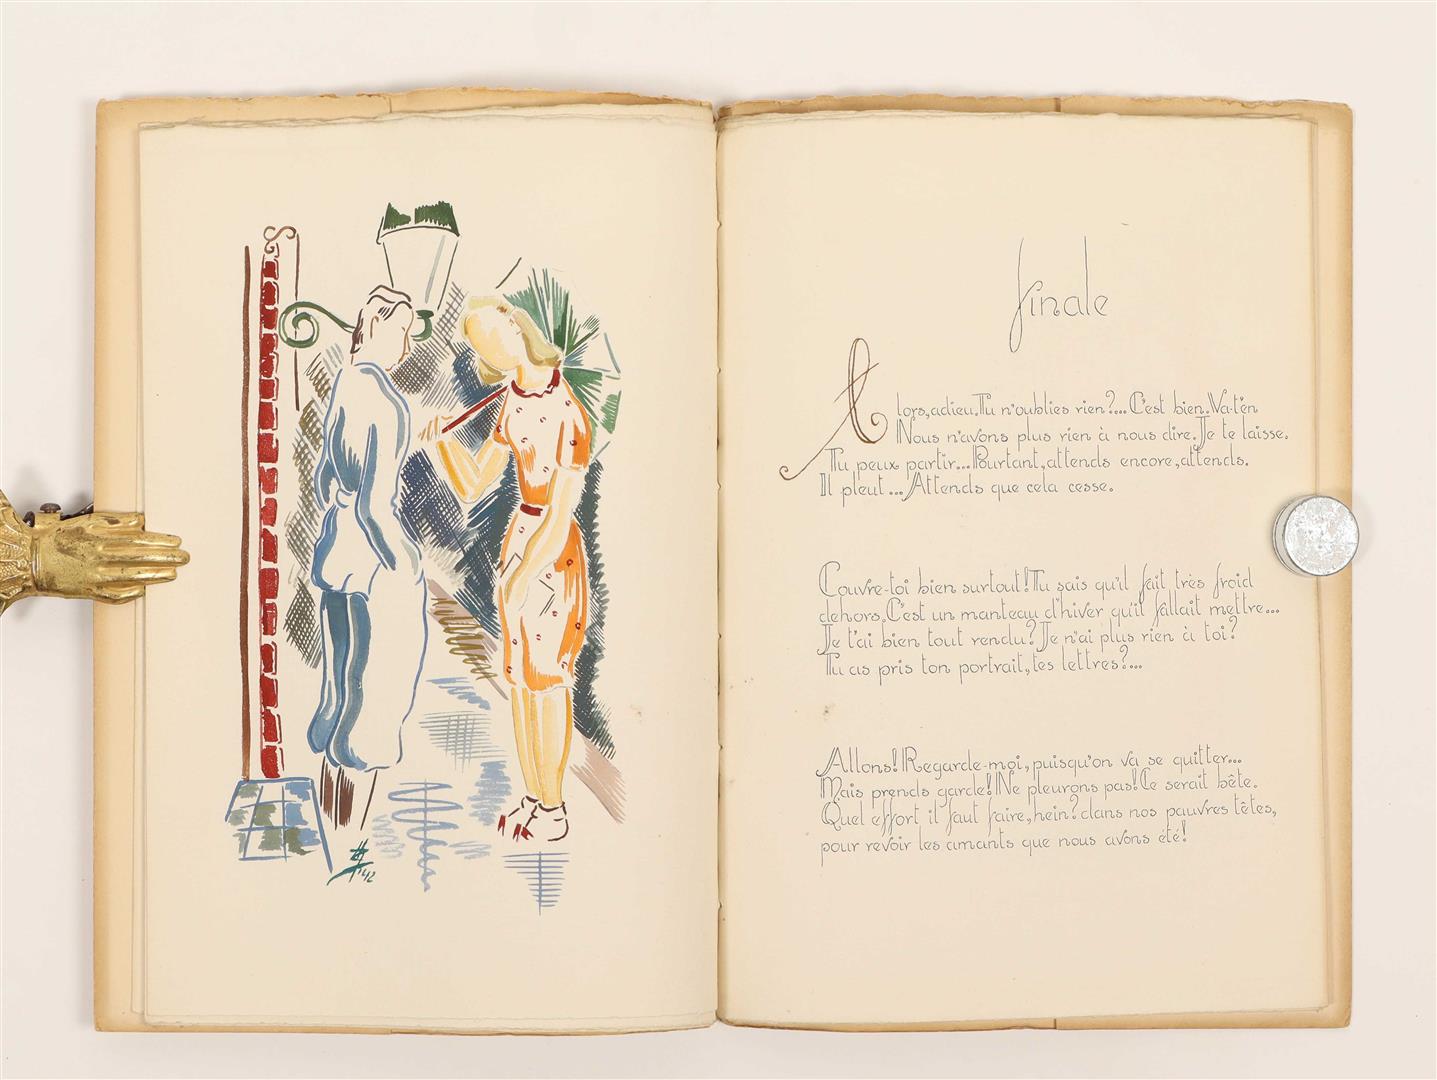 finale
Alors, adieu. Tu n'oublies rien?... C'est bien. Va-t'en
Nous n'avons plus rien à nous dire. Je te laisse.
Tu peux partir... Pourtant, attends encore, attends.
Il pleut... Attends que cela cesse.
Couvre-toi bien surtout! Tu sais qu'il fait très froid
dehors. C'est un manteau d'hiver qu'il fallait mettre...
Je t'ai bien tout rendu? Je n'ai plus rien à toi?
Tu as pris ton portrait, tes lettres?...
Allons! Regarde-moi, puisqu'on va se quitter...
Mais prends garde! Ne pleurons pas! Ce serait bête.
Quel effort il faut faire, hein? dans nos pauvres têtes,
pour revoir les amants que nous avons été!
'42